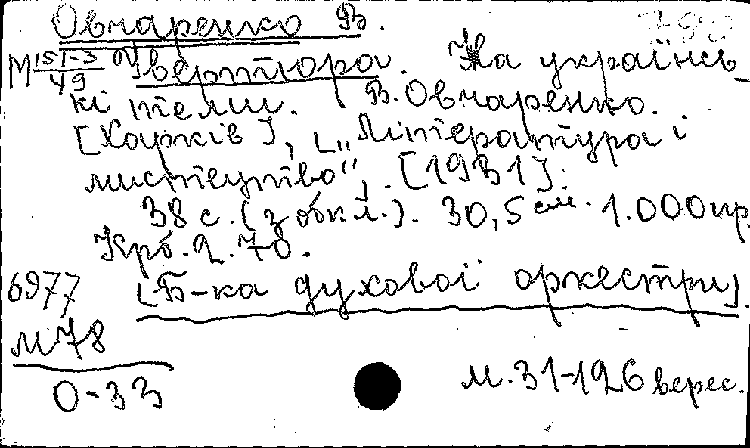 Овчаренко В.
М 151-3/49 Увертюра. На українсь-
кі теми. В. Овчаренко.
[Харків], [„Література і
мистецтво"]. [1931].
38 с. (з обкл.). 30,5 см. 1.000 пр.
Крб. 2.70.
6977 [Б-ка духової оркестри].
М78
О-33 М.31-196 верес.